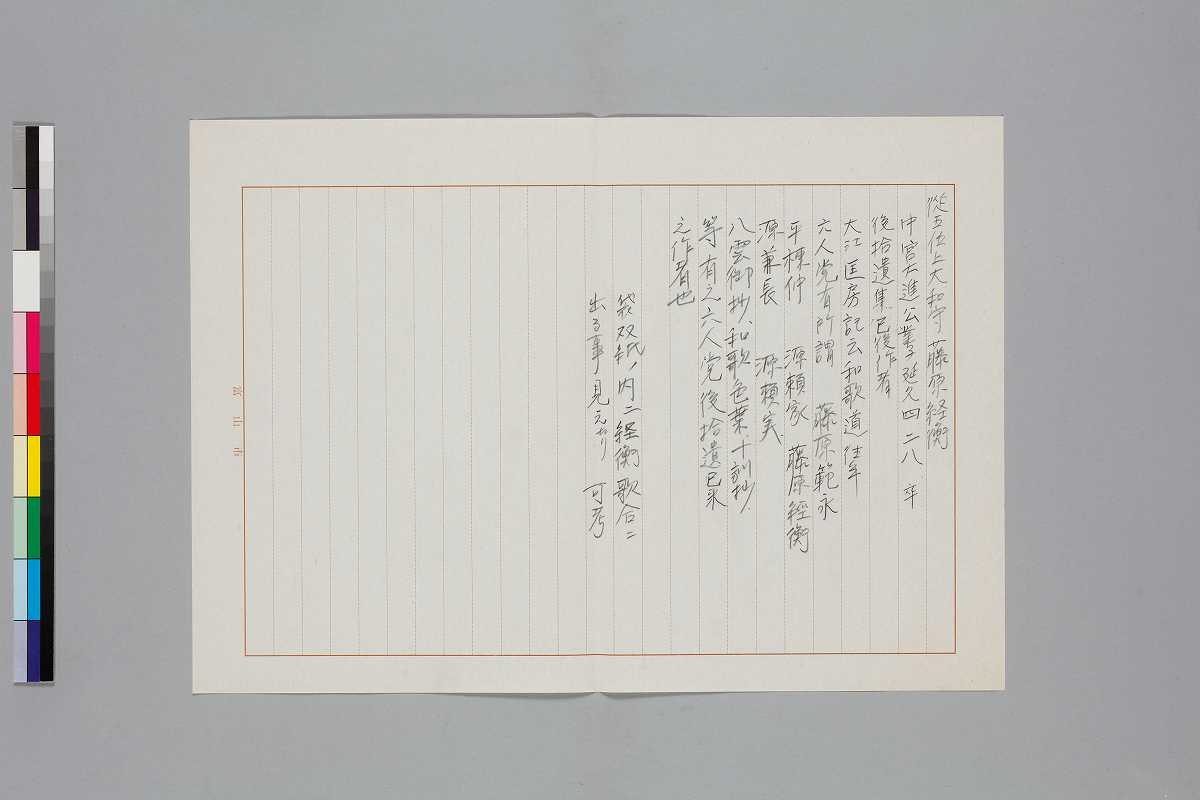 從五位上大和守藤原経衡
中宮大進公業子延久四二八 卒
後拾遺集已後作者
大江匡房記云和歌道往年
六人党有所謂 藤原範永
平棟仲 源頼家 藤原経衡
源兼長 源頼実
八雲御抄、和歌色葉、十訓抄
等有之六人党後拾遺已来
之作者也
袋双紙ノ内ニ経衡歌合ニ
出る事見えたり 可考